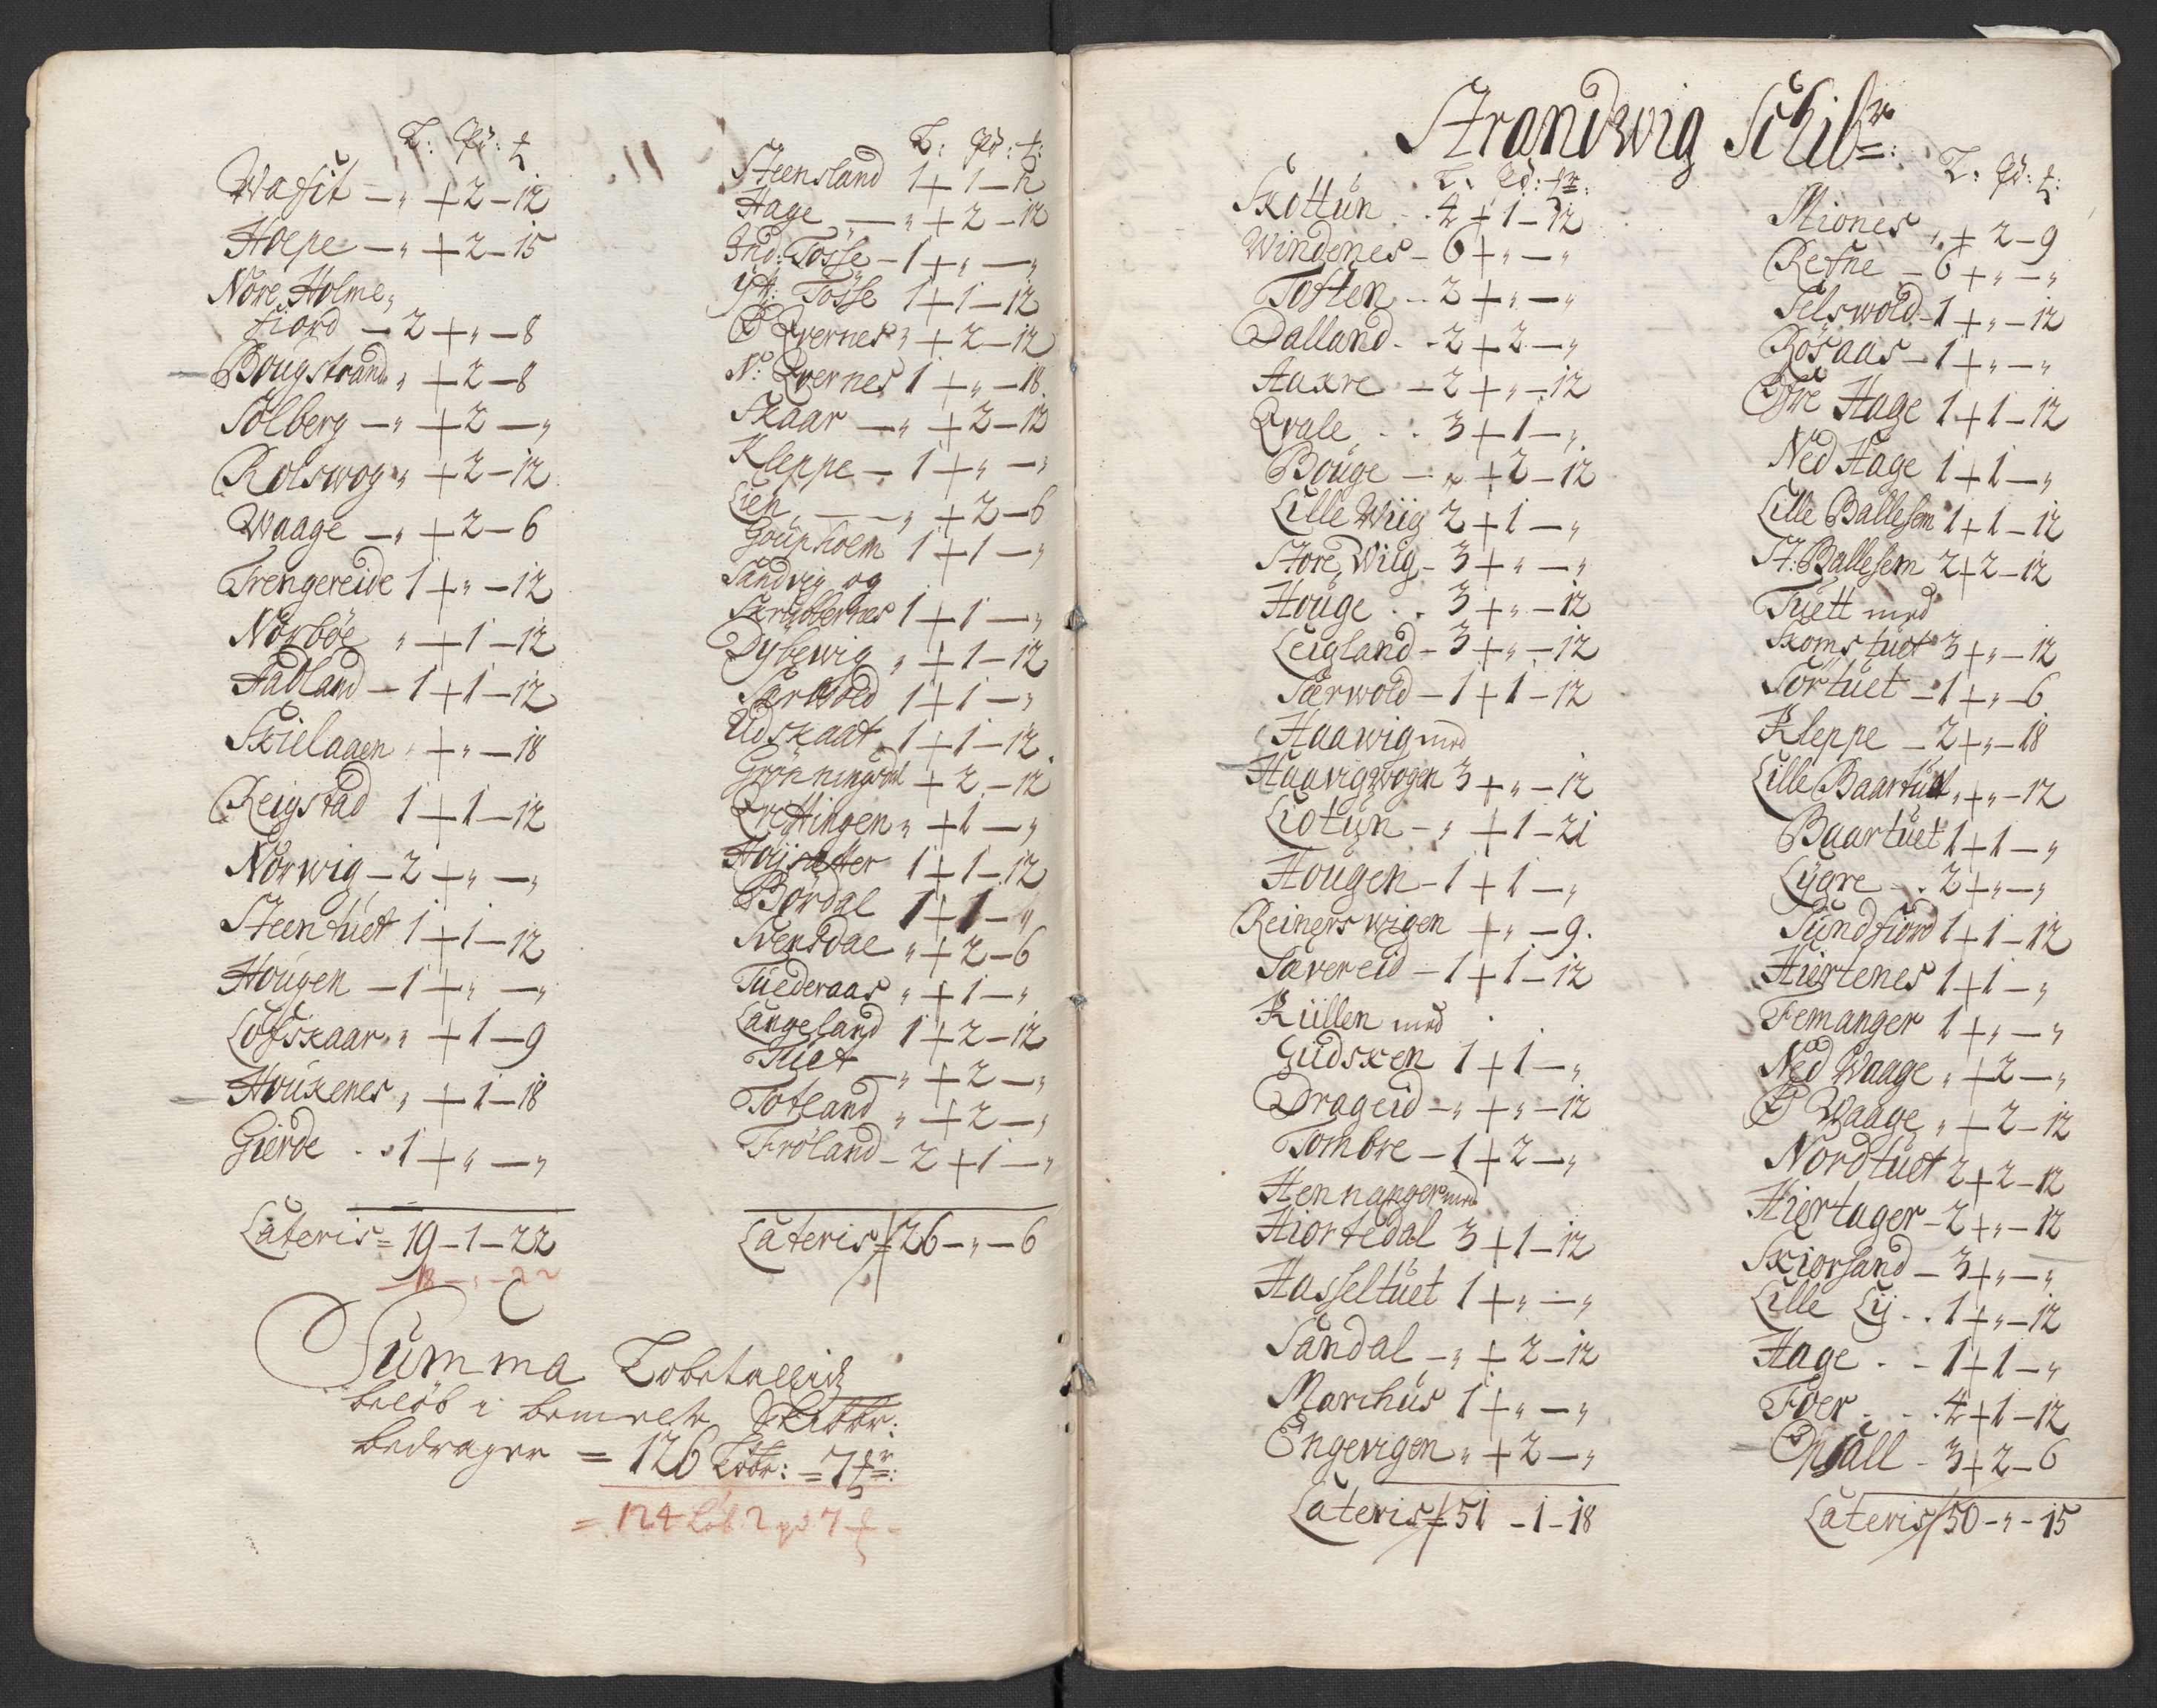 L: Pd: ℔
Wafit — „ + 2 — 12
Hoepe — „ + 2 — 15
Nore Holme„
fiord — 2 + „ — 8
Bougstrand „ + 2 — 8
Solberg — „ + 2 — „
Rolswog „ + 2 — 12
Waage — „ + 2 — 6
Trengereide 1 + „ — 12
Norböe „ + 1 — 12
Fadland — 1 + 1 — 12
Skielaaen „ + „ — 18
Reigstad 1 + 1 — 12
Norwig — 2 + „ — „
Steentuet 1 + 1 — 12
Hougen — 1 + „ — „
Lofskaar „ + 1 — 9
Houkenes „ + 1 — 18
Gierde . . 1 + „ — „
Lateris = 19 — 1 — 22
18 — „ — 22
Summa Lobetallid
beløb i bemelte Skibbr:
bedrager = 126 Lobr: = 7 ℔r:
= 124 Lob 2 pd 7 ℔
L: Pd: ℔:
Steensland 1 + 1 — 12
Hage — „ + 2 — 12
Ind: Tösse — 1 + „ — „
Ytt: Tösse 1 + 1 — 12
Ø Qvernes „ + 2 — 12
N: Qvernes 1 + „ — 18
Skaar — „ + 2 — 12
Kleppe — 1 + „ — „
Lien — — „ + 2 — 6
Goupholm 1 + 1 — „
Sandvig og
Skrublernes 1 + 1 — „
Dybewig „ + 1 — 12
Sarwold 1 + 1 — „
Udskaat 1 + 1 — 12
Grönningsdal + 2 — 12
Qvittingen „ + 1 — „
Høysetter 1 + 1 — 12
Bördal 1 + 1 — „
Svensdal „ + 2 — 6
Tuederaas „ + 1 — „
Langeland 1 + 2 — 12
Tuet — „ + 2 — „
Totland „ + 2 — „
Fröland — 2 + 1 — „
Lateris = 26 — „ — 6
Strandwig Schibr:
L: Pd: ℔r:
Skottun . . 4 + 1 — 12
Windenes — 6 + „ — „
Toften . . 2 + „ — „
Dalland . . 2 + 2 — „
Aakre — 2 + „ — 12
Qvale . . 3 + 1 — „
Bouge — „ + 2 — 12
Lille Wiig 2 + 1 — „
Store Wiig — 3 + „ — „
Houge . . 3 + „ — 12
Leigland — 3 + „ — 12
Særwold — 1 + 1 — 12
Haawig med
Haavigwogen 3 + „ — 12
Liotün — „ + 1 — 21
Hougen — 1 + 1 — „
Reinerswigen + „ — 9.
Sævereid — 1 + 1 — 12
Küllen med
Gudsken 1 + 1 — „
Drageid — „ + „ — 12
Tombre — 1 + 2 — „
Hennanger med
Hiortedal 3 + 1 — 12
Hasseltuet 1 + „ — „
Sandal — „ + 2 — 12
Marchus 1 + „ — „
Engevigen „ + 2 — „
Lateris = 51 — 1 — 18
L: Pd: ℔:
Miones „ + 2 — 9
Refne — 6 + „ — „
Selswold — 1 + „ — 12
Rosaas — 1 + „ — „
Øfre Hage 1 + 1 — 12
Ned Hage 1 + 1 — „
Lille Ballesem 1 + 1 — 12
St: Ballesem 2 + 2 — 12
Tuett med
Skomstuet 3 + „ — 12
Sörtuet — 1 + „ — 6
Kleppe — 2 + „ — 18
Lille Baartuet „ + „ — 12
Baartuet 1 + 1 — „
Lygre — . 2 + „ — „
Sundfiord 1 + 1 — 12
Hiertenes 1 + 1 — „
Femanger 1 + „ — „
Ned Waage „ + 2 — „
Ø Waage „ + 2 — 12
Nordtuet 2 + 2 — 12
Hiertager — 2 + „ — 12
Skiorsand — 3 + „ — „
Lille Ly . . 1 + „ — 12
Hage . . 1 + 1 — „
Foer . . . 4 + 1 — 12
Opsall — 3 + 2 — 6
Lateris 50 — „ — 15